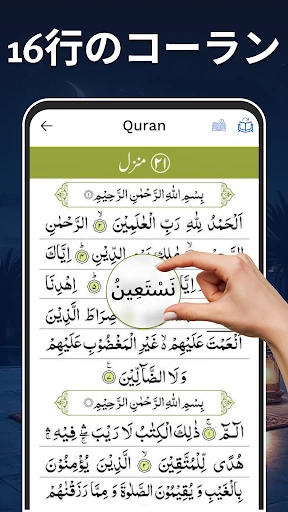 16行のコーラン
Quran
منزل ٢١
بِسْمِ اللّٰهِ الرَّحْمٰنِ الرَّحِيْمِ
اَلْحَمْدُ لِلّٰهِ رَبِّ الْعٰلَمِيْنَ ۙ الرَّحْمٰنِ
الرَّحِيْمِ ۙ مٰلِكِ يَوْمِ الدِّيْنِ اِيَّاكَ
نَسْتَعِيْنُ اِهْدِنَا
صِرَاطَ الَّذِيْنَ
اَنْعَمْتَ عَلَيْهِمْ ۙ غَيْرِ الْمَغْضُوْبِ عَلَيْهِمْ
وَلَا الضَّآلِّيْنَ
بِسْمِ اللّٰهِ الرَّحْمٰنِ الرَّحِيْمِ
الٓمّٓ ۚ ذٰلِكَ الْكِتٰبُ لَا رَيْبَ ۛ فِيْهِ ۛ
هُدًى لِّلْمُتَّقِيْنَ الَّذِيْنَ يُؤْمِنُوْنَ
بِالْغَيْبِ وَ يُقِيْمُوْنَ الصَّلٰوةَ وَ مِمَّا رَزَقْنٰهُمْ